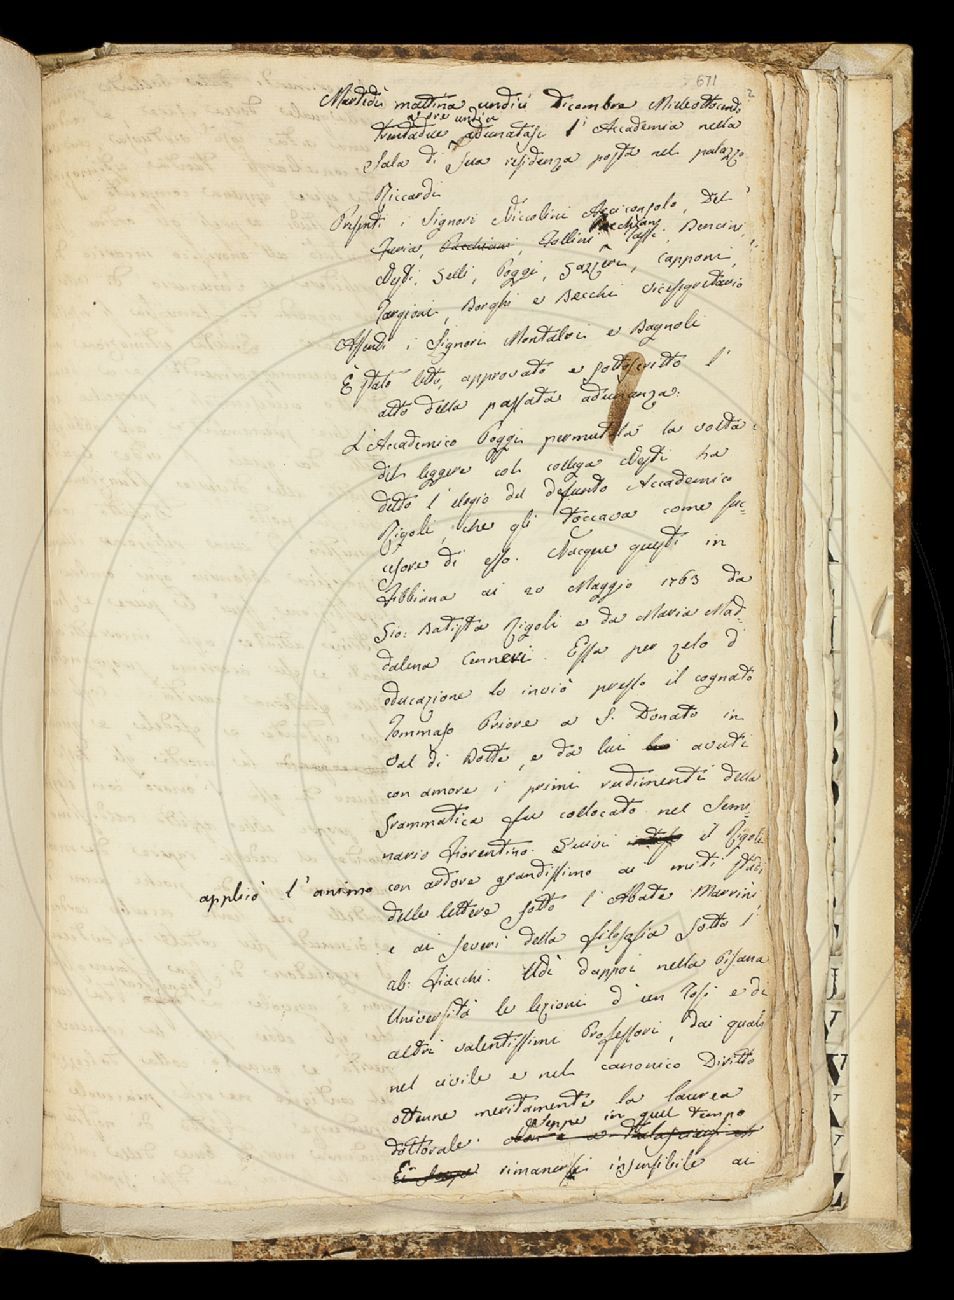 671
2
Martedì mattina undici Dicembre Milleottocento
a ore undici
trentadue adunatasi l'Accademia nella
Sala di Sua residenza posta nel palazzo
Riccardi
Presenti i Signori Niccolini Arciconsolo, Del
Pacchiani
Furia, Pacchiani, Follini, Tassi, Bencini,
Nesti, Gelli, Poggi, Gazzeri, Capponi,
Targioni, Borghi e Becchi vicesegretario
Assenti i Signori Montalvi e Bagnoli
È stato letto, approvato e sottoscritto l'
atto della passata adunanza.
L'Accademico Poggi permutata la volta
del leggere col collega Nesti ha
detto l'elogio del defunto Accademico
Rigoli, che gli toccava come suc-
cessore di esso. Nacque questi in
Fibbiana ai 20 Maggio 1763 da
Gio: Batista Rigoli e da Maria Mad-
dalena Cenneri. Essa per zelo d'
educazione lo inviò presso il cognato
Tommaso Priore a S. Donato in
Val di Botte, e da lui avuti
con amore i primi rudimenti della
Grammatica fu collocato nel Semi-
nario Fiorentino. Quivi il Rigoli
applicò l'animo con ardore grandissimo ai miti studi
delle lettere sotto l'Abate Marrini,
e ai severi della filosofia sotto l'
ab: Fiacchi. Udì dappoi nella Pisana
Università le lezioni d'un Tosi e di
altri valentissimi Professori, dai quali
nel civile e nel canonico Diritto
ottenne meritamente la laurea
dottorale.
Seppe in quel tempo
rimanersi insensibile ai